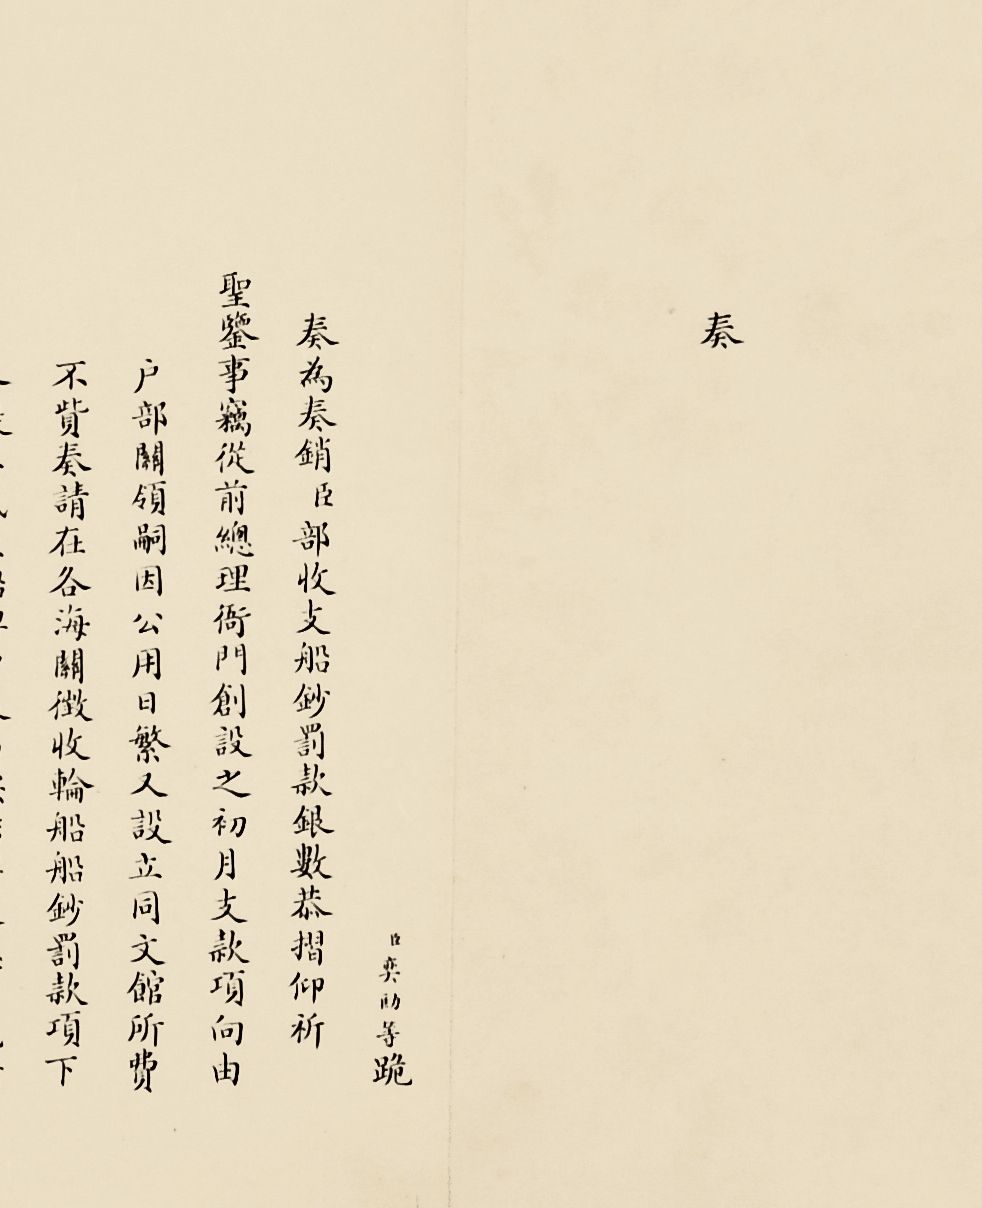 奏
臣奕劻等跪
奏為奏銷臣部收支船鈔罰款銀數恭摺仰祈
聖鑒事竊從前總理衙門創設之初月支款項向由
户部關領嗣因公用日繁又設立同文館所費
不貲奏請在各海關徵收輪船船鈔罰款項下